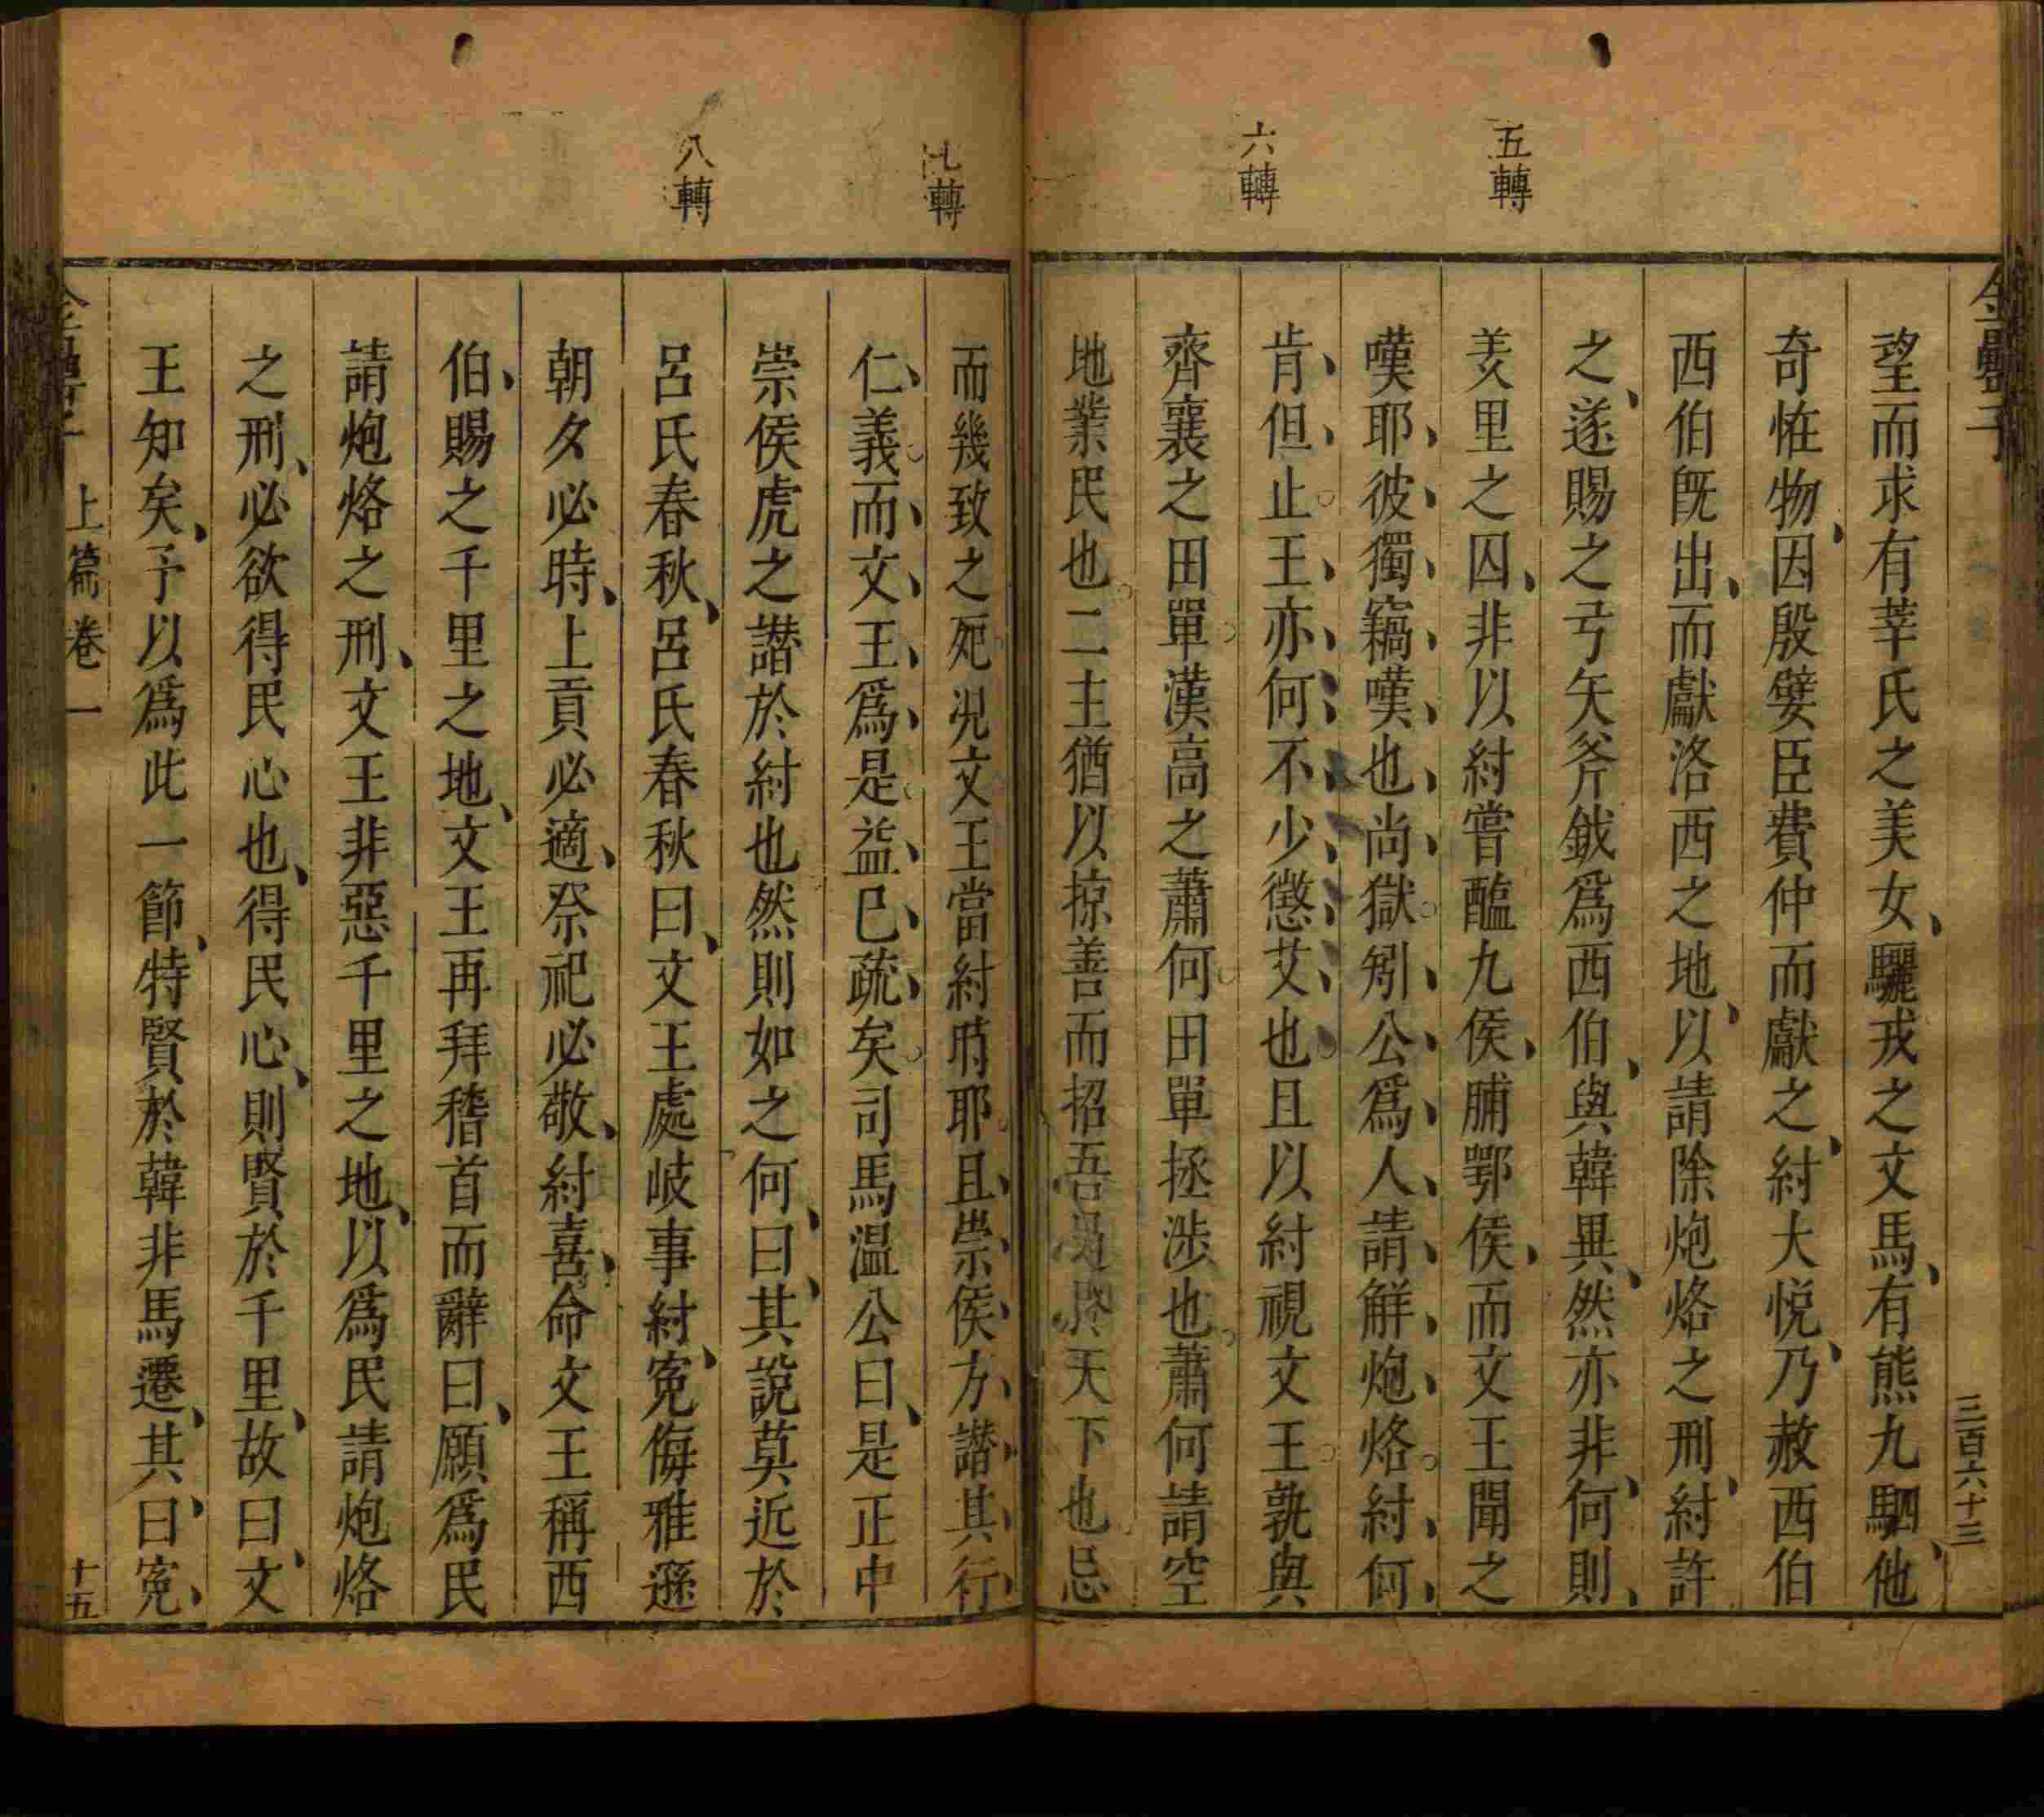 金罍子
三百六十三
五轉
六轉
望而求有莘氏之美女驪戎之文馬有熊九駟他
奇恠物因殷嬖臣費仲而獻之紂大悅乃赦西伯
西伯既出而獻洛西之地以請除炮烙之刑紂許
之遂賜之弓矢斧鉞爲西伯與韓異然亦非何則
羑里之囚非以紂嘗醢九侯脯鄂侯而文王聞之
嘆耶彼獨竊嘆也尚獄矧公爲人請解炮烙紂何
肯但止王亦何不少懲艾也且以紂視文王孰與
齊襄之田單漢高之蕭何田單拯涉也蕭何請空
地業民也二主猶以掠善而招吾天下也忌
七轉
八轉
而幾致之死况文王當紂時耶且崇侯方譖其行
仁義而文王爲是益已疏矣司馬温公曰是正中
崇侯虎之譖於紂也然則如之何曰其說莫近於
呂氏春秋呂氏春秋曰文王處岐事紂寃侮雅遜
朝夕必時上貢必適祭祀必敬紂喜命文王稱西
伯賜之千里之地文王再拜稽首而辭曰願爲民
請炮烙之刑文王非惡千里之地以爲民請炮烙
之刑必欲得民心也得民心則賢於千里故曰文
王知矣予以爲此一節特賢於韓非馬遷其曰寃
上篇卷一
十五